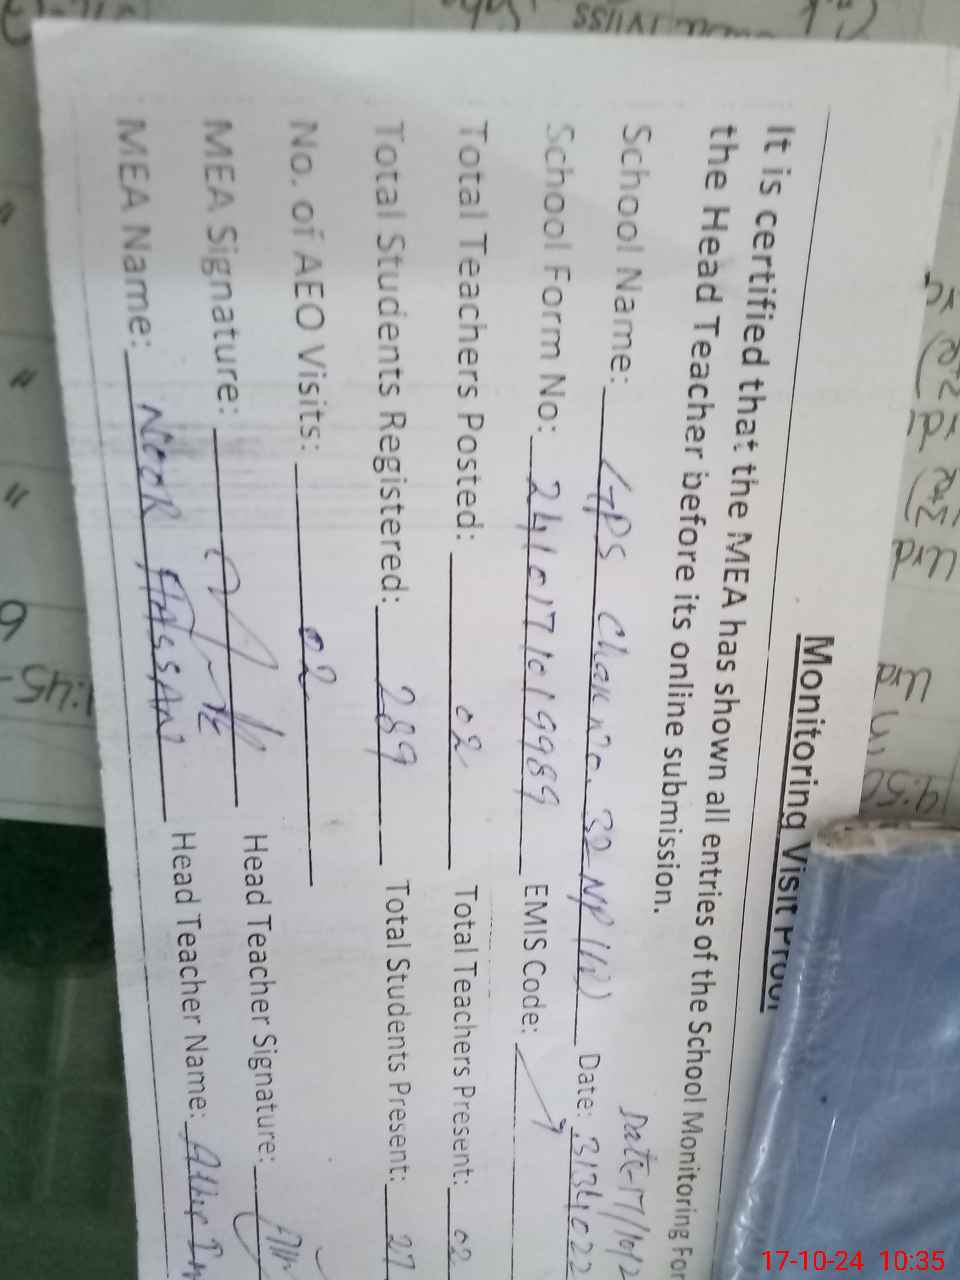 Monitoring Visit Proof
It is certified that the MEA has shown all entries of the School Monitoring For
the Head Teacher before its online submission.
Date 17/10/2
School Name: GPS Chak no. 32 NP (W) Date: 3134022
School Form No: 2410171019989 EMIS Code:
Total Teachers Posted: 02 Total Teachers Present: 02
Total Students Registered: 289 Total Students Present: 27
No. of AEO Visits: 02
MEA Signature: Head Teacher Signature:
MEA Name: NOOR HASSAN Head Teacher Name:
17-10-24 10:35